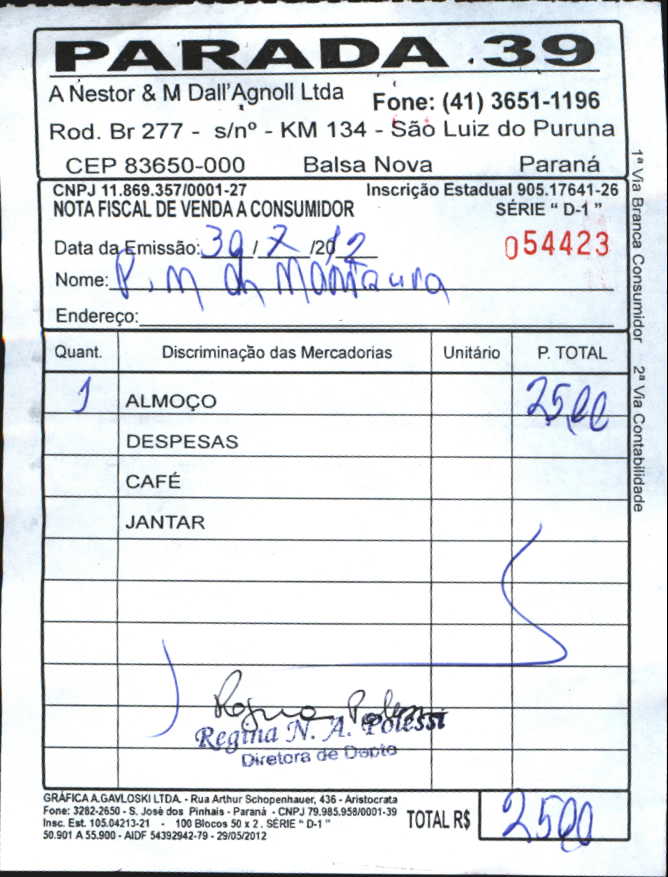 PARADA 39
A Nestor & M Dall'Agnoll Ltda Fone: (41) 3651-1196
Rod. Br 277 - s/nº - KM 134 - São Luiz do Puruna
CEP 83650-000 Balsa Nova Paraná
CNPJ 11.869.357/0001-27 Inscrição Estadual 905.17641-26
NOTA FISCAL DE VENDA A CONSUMIDOR SÉRIE “ D-1 ”
Data da Emissão: 30 / 7 /2012 054423
Nome: P. M
Endereço:
Quant. Discriminação das Mercadorias Unitário P. TOTAL
1 ALMOÇO 25,00
DESPESAS
CAFÉ
JANTAR
Regina N. A. Polessi
Diretora de Depto
GRÁFICA A.GAVLOSKI LTDA. - Rua Arthur Schopenhauer, 436 - Aristocrata
Fone: 3282-2650 - S. José dos Pinhais - Paraná - CNPJ 79.985.958/0001-39
Insc. Est. 105.04213-21 - 100 Blocos 50 x 2. SÉRIE “ D-1 ”
50.901 A 55.900 - AIDF 54392942-79 - 29/05/2012
TOTAL R$ 2500
1ª Via Branca Consumidor 2ª Via Contabilidade